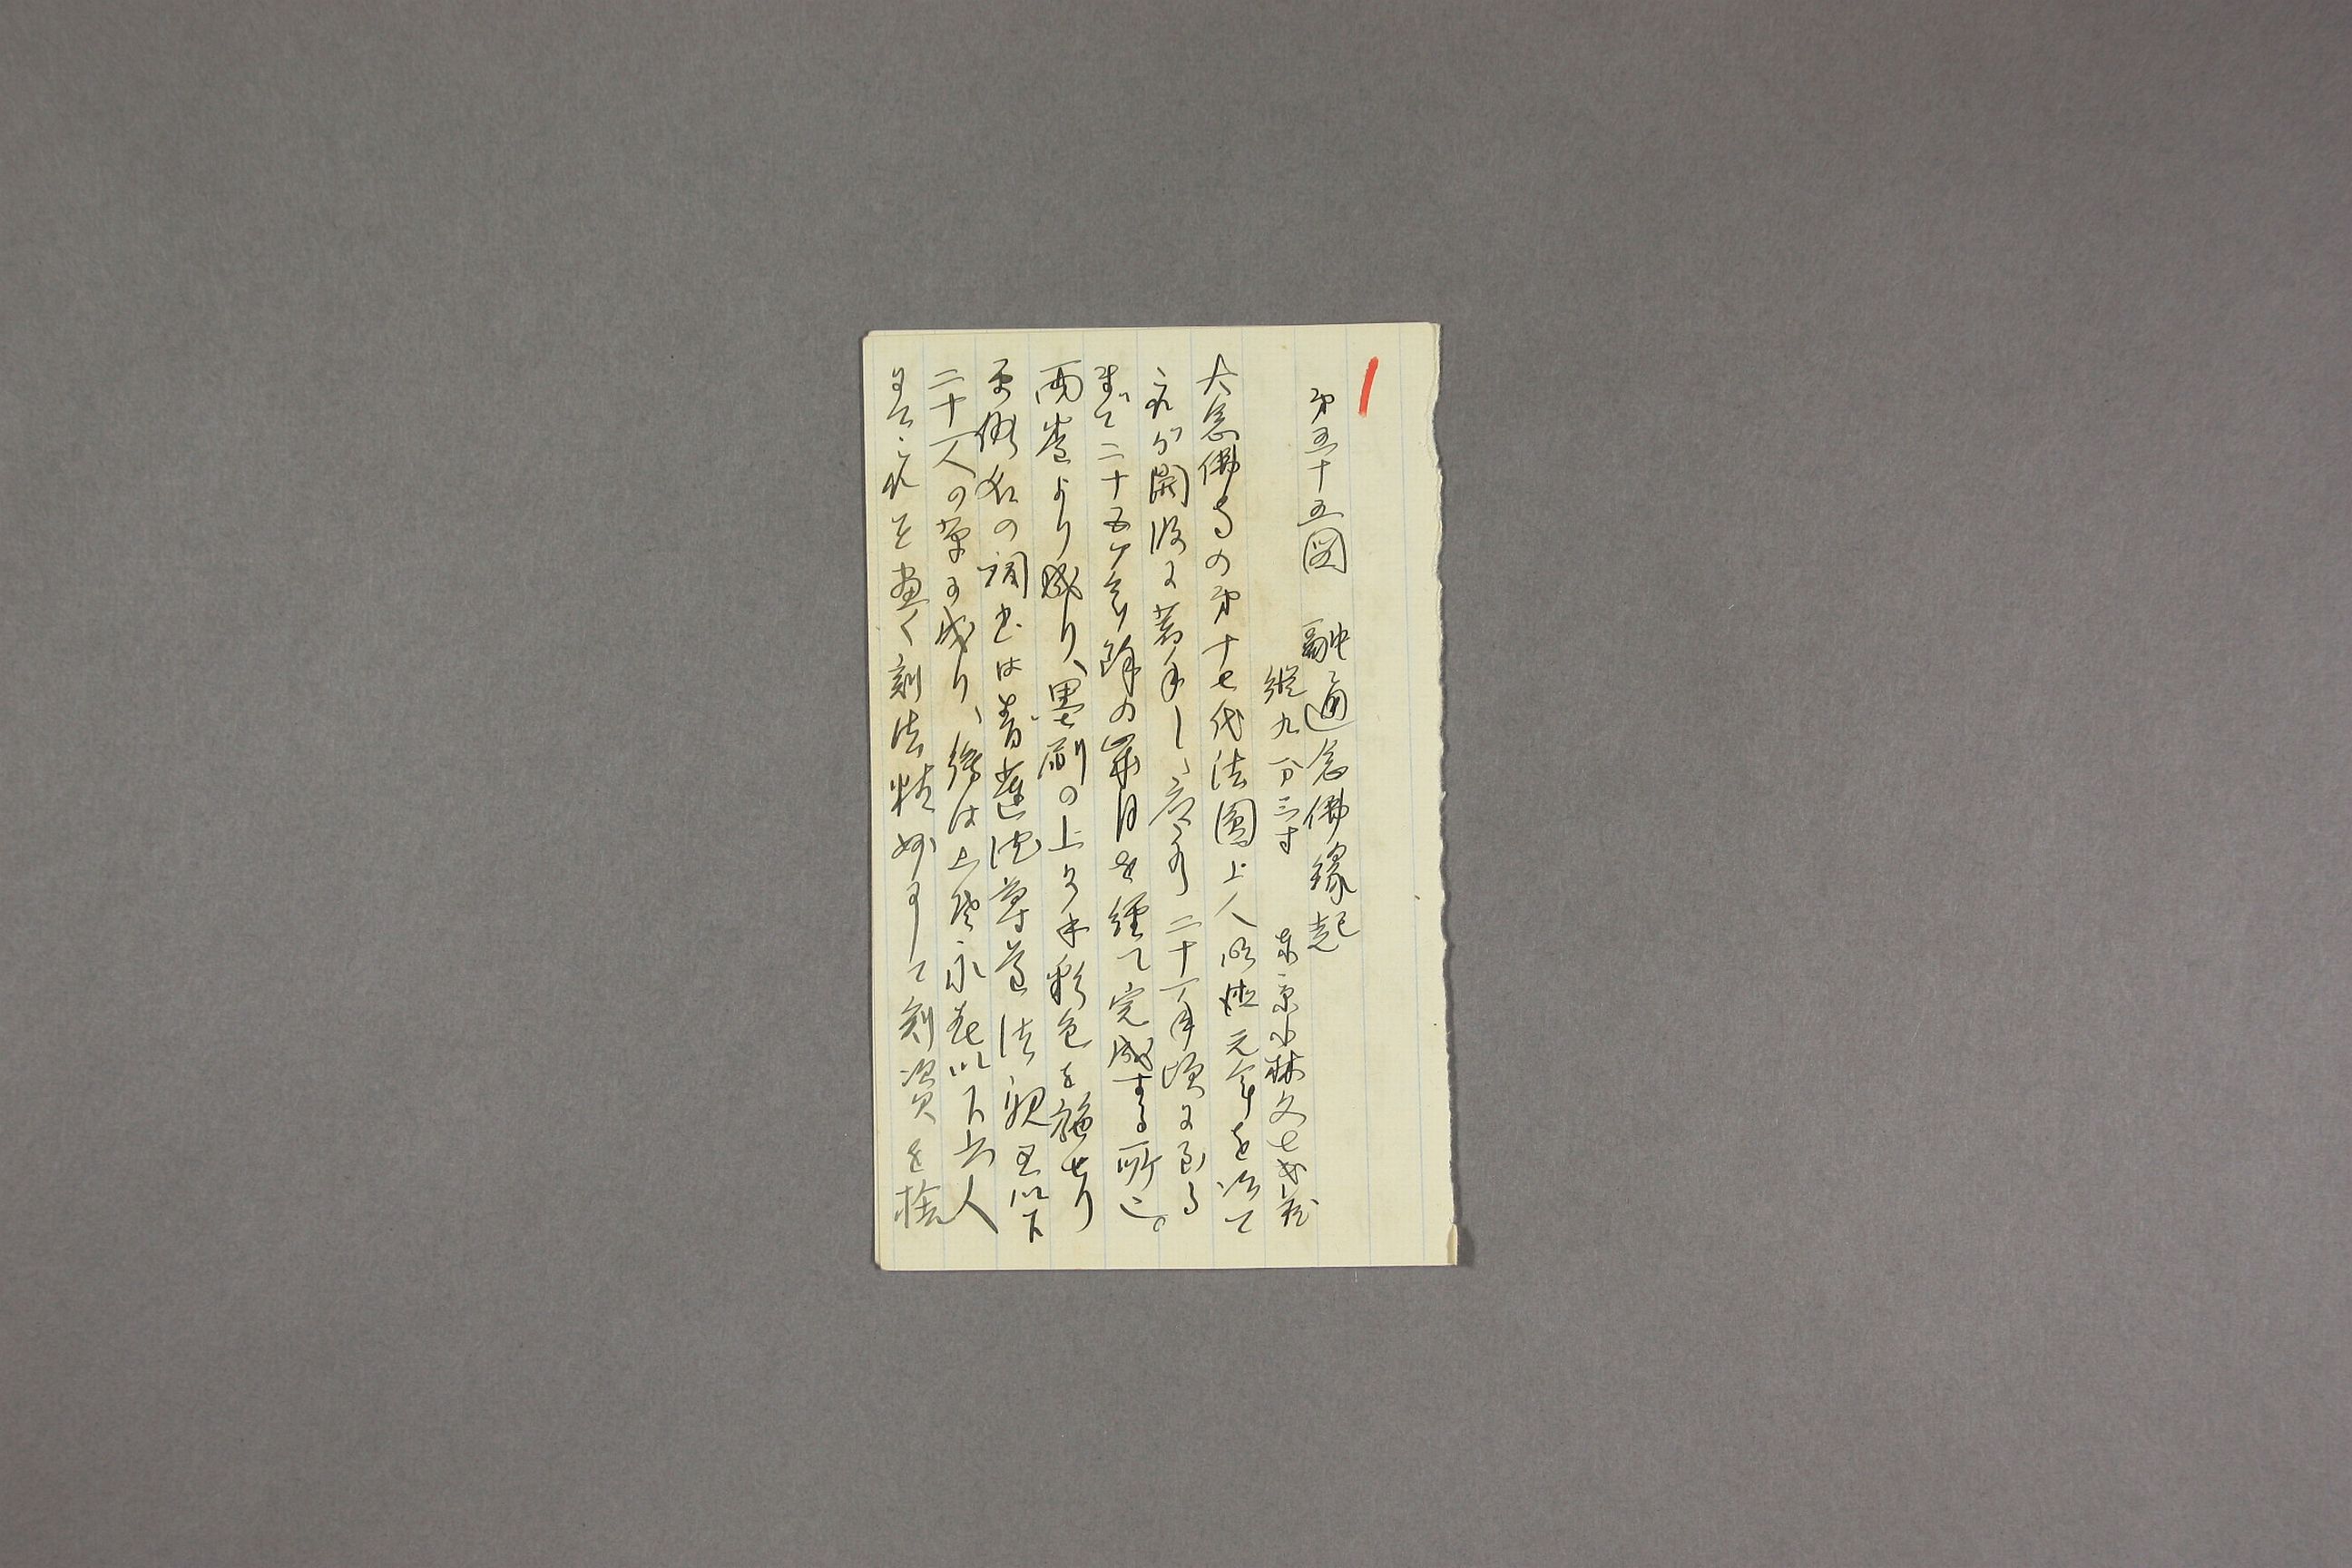 第五十五図　融通念佛縁起
縦九分三寸　東京小林文七氏蔵
大念佛寺の第十七代法圓上人明徳元年を以て
これが開版に着手し、應永二十一年頃に至る
まで二十五ケ年餘の歳月を経て完成する所に。
両巻より成り、墨刷の上に手彩色を施せり
平假名の詞書は青蓮院尊道法親王以下
二十一人の筆に成り、繪は土佐永春以下六人
にてこれを畫く刻法精妙にして刻資を捨